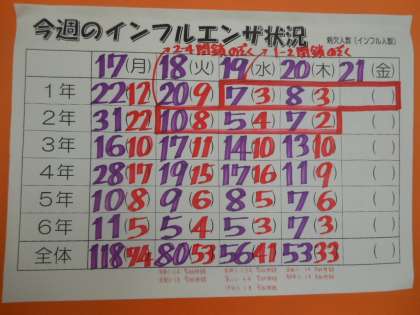 今週のインフルエンザ状況
病欠人数(インフル人数)
2-4閉鎖のぞく 1-2閉鎖のぞく
17(月) 18(火) 19(水) 20(木) 21(金)
1年 22(12) 20(9) 7(3) 8(3) ( )
2年 31(22) 10(8) 5(4) 7(2) ( )
3年 16(10) 17(11) 14(10) 13(10) ( )
4年 28(17) 19(15) 17(16) 11(9) ( )
5年 10(8) 9(6) 8(5) 7(6) ( )
6年 11(5) 5(4) 5(3) 7(3) ( )
全体 118(74) 80(53) 56(41) 53(33) ( )